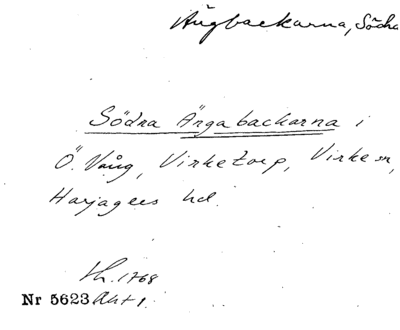 Ängbackarna, Södra
Södra Änga backarna i
Ö. Vång, Virketorp, Virke sn,
Harjagers hd.
Lh. 1768
Nr 5623 Akt 1.